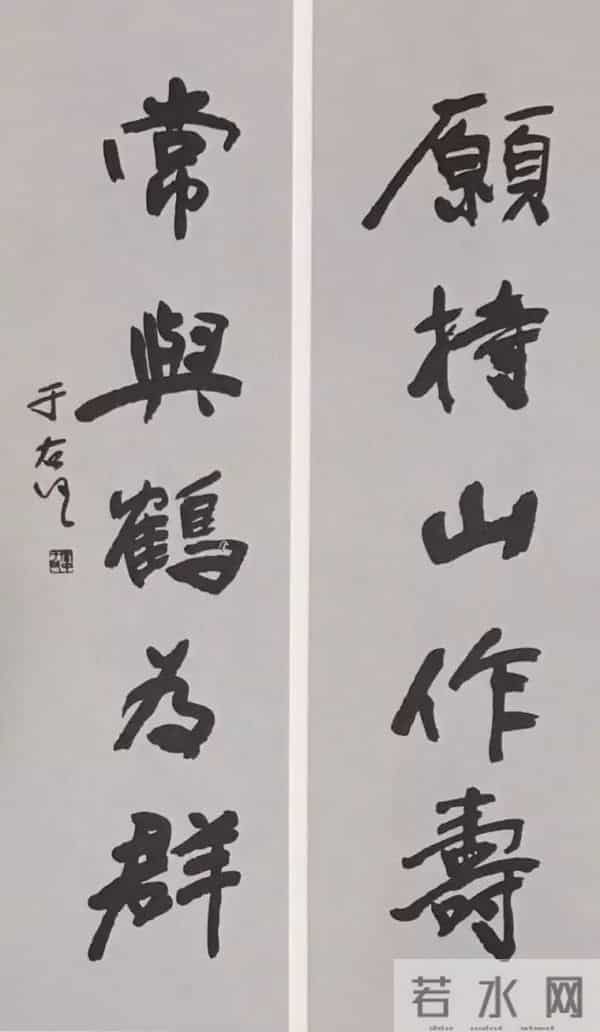 願持山作壽
常與鶴為群
于右任
若水网